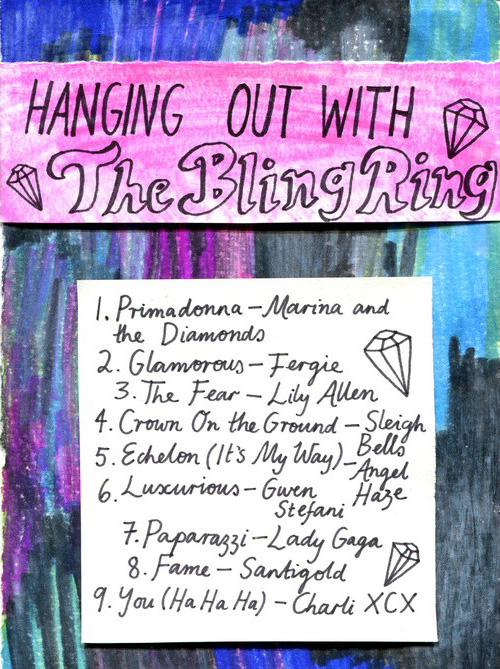 HANGING OUT WITH
The Bling Ring
1. Primadonna – Marina and
the Diamonds
2. Glamorous – Fergie
3. The Fear – Lily Allen
4. Crown On the Ground – Sleigh
Bells
5. Echelon (It's My Way) – Angel
Haze
6. Luxcurious – Gwen
Stefani
7. Paparazzi – Lady Gaga
8. Fame – Santigold
9. You (Ha Ha Ha) – Charli XCX